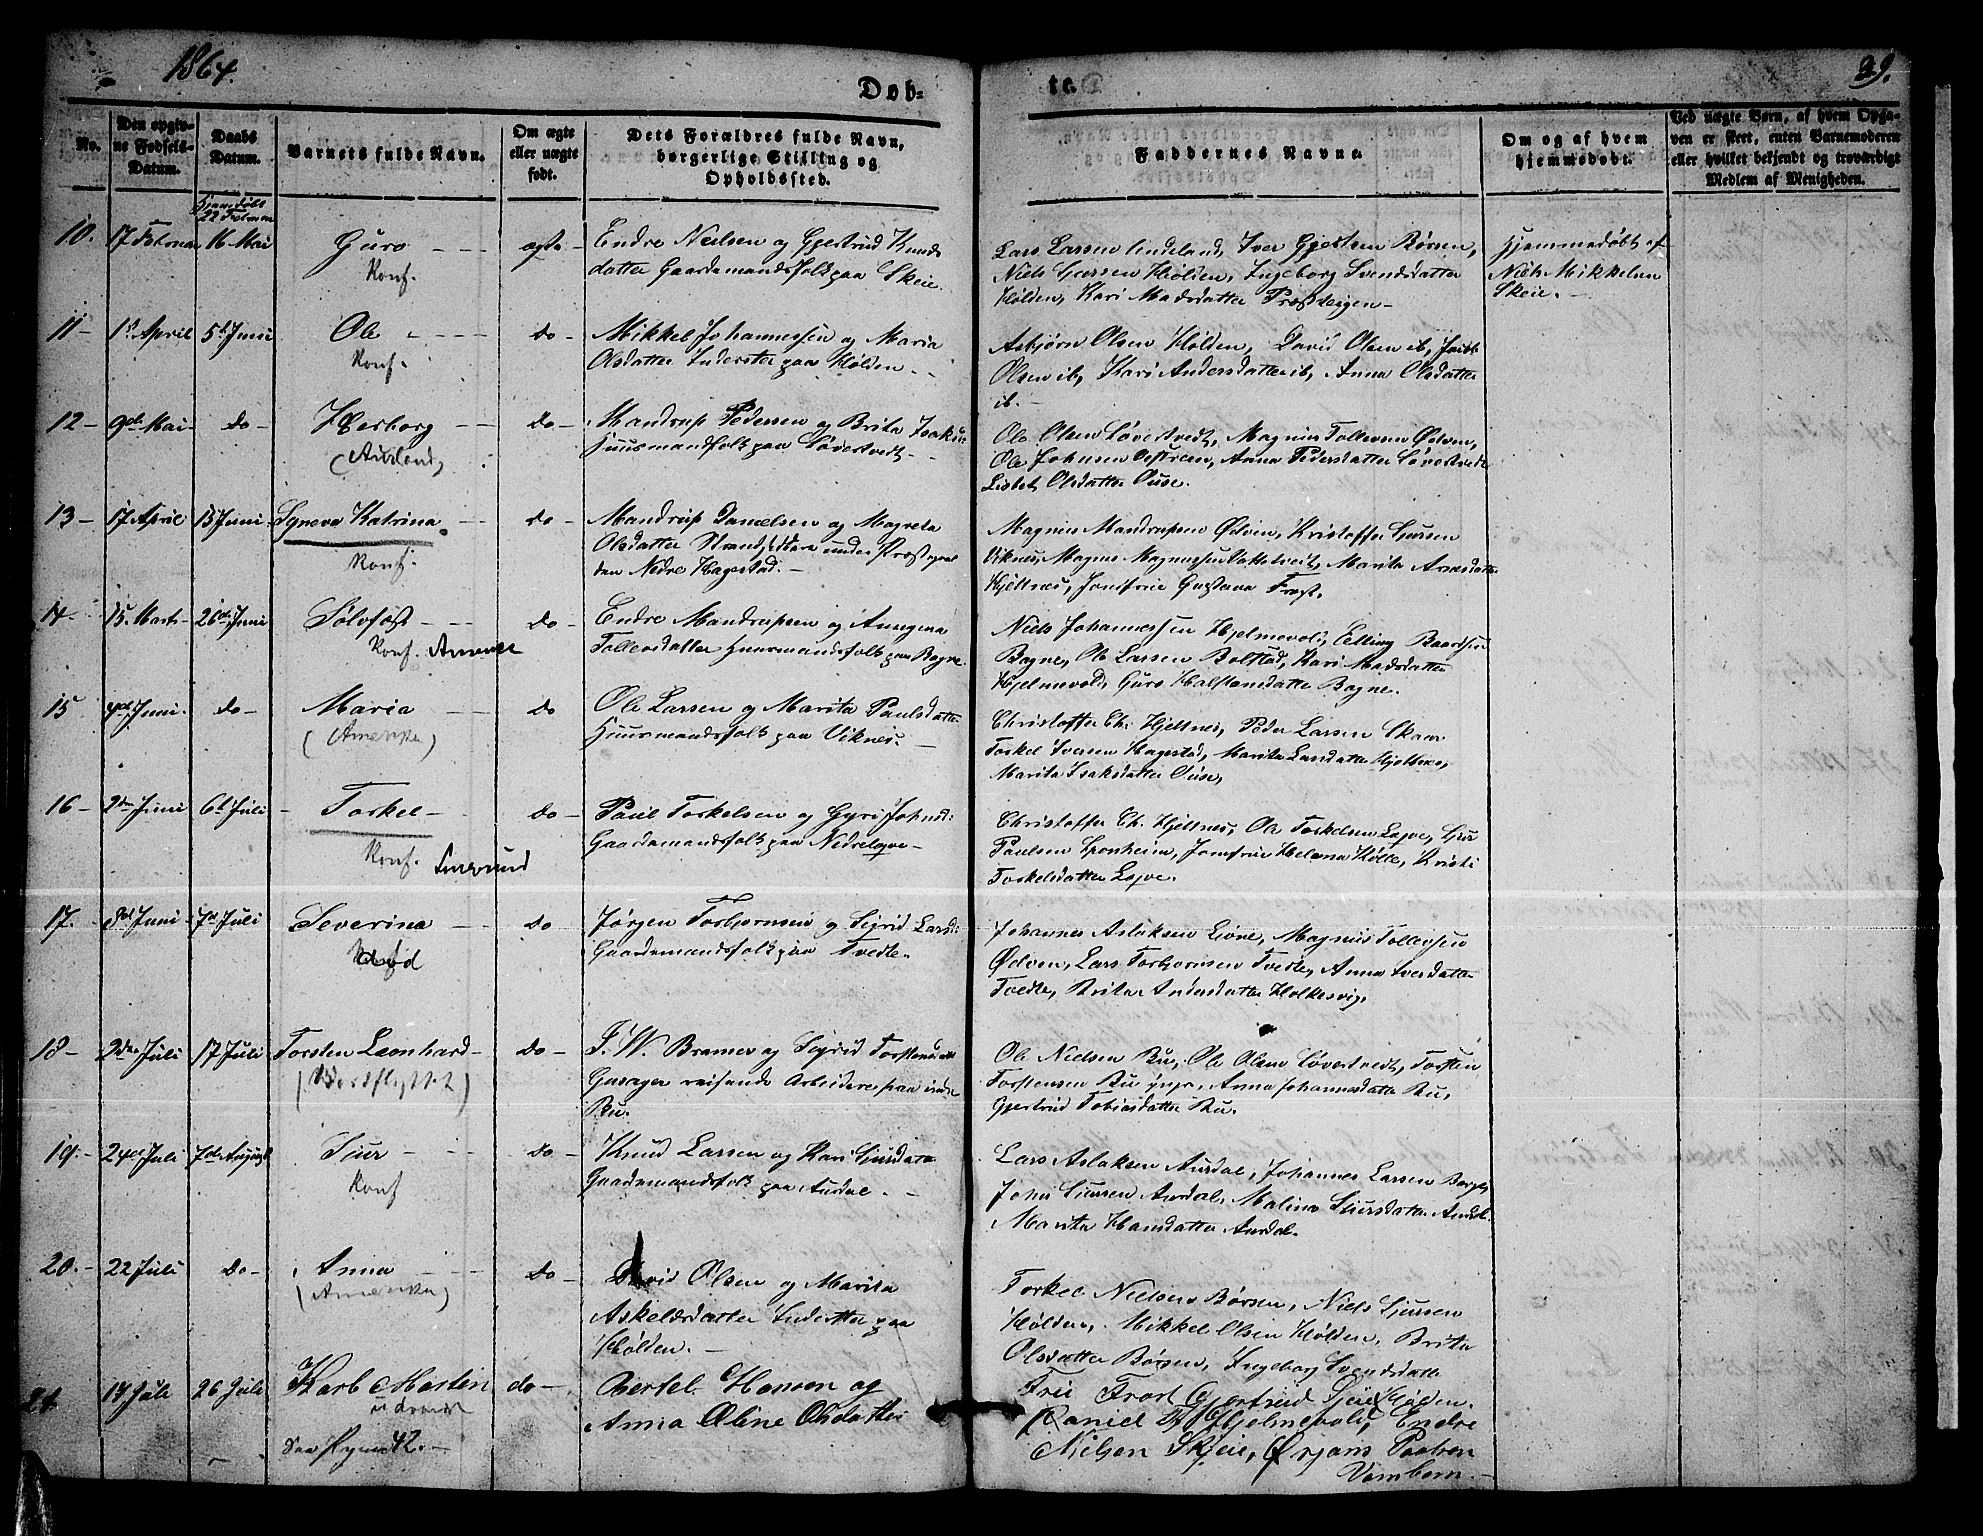 1864.
Døb=
te.
29.
No.
Den opgiv-
ne Fødsels-
Datum.
Daabs
Datum.
Barnets fulde Navn.
Om ægte
eller uægte
født.
Dets Forældres fulde Navn,
borgerlige Stilling og
Opholdssted.
Faddernes Navne.
Om og af hvem
hjemmedøbt.
Ved uægte Børn, af hvem Opga-
ven er skeet, enten Barnemoderen
eller hvilket bekjendt og troværdigt
Medlem af Menigheden.
hjemmedøbt
22 Februar
10. 17 Februar 16 Mai Guro ægte Endre Nielsen og Gjertrud Knuds
datter Gaardmandsfolk paa Skeie
Konf.
Lars Larsen Lindeland, Iver Gjertsen Børsen,
Niels Sjursen Hølden, Ingeborg Svendsdatter
Hølden, Kari Madsdatter Præstteigen
hjemmedøbt af
Niels Mikkelsen
Skeie.
11 1st April 5t Juni Ole do Mikkel Johannessen og Maria
Olsdatter Inderster paa Hølden
Konf.
Asbjørn Olsen Hølden, David Olsen ib,
Olsen ib, Kari Andersdatter ib, Anna Olsdatter
ib.
12 9de Mai do Herborg do Mandrup Pedersen og Brita Isaks:
Huusmandfolk paa Løvestvedt
(Aurland)
Ole Olsen Løvestvedt, Magnus Tollevsen Ødven,
Ole Johnsen, Anna Pedersdatter Løvestvedt
Lisbet Olsdatter Ouse.
13 17 April 13 Juni Syneva Katrina do Mandrup Danielsen og Magreta
Olsdatter Strandsiddere under Præstegaar
den Nedre Hagestad.
Konf.
Magnus Mandrupsen Ødven, Kristoffer Sjursen
Viknes, Magnus Magnussen, Marita
Hjeltnes, Jomfrue Gustava Frost.
14. 15 Marts 26de Juni Sølvfæst do Endre Mandrupsen og Ansgjerna
Tollevsdatter Huusmandsfolk paa Bagne.
Konf. Amerika
Niels Johannessen Hjelmevold, Elling Baardsen
Bagne, Ole Larsen Bolstad, Kari Madsdatter
Hjelmevold, Guro Halstensdatter Bagne.
15 Juni do Maria do Ole Larsen og Marita Paulsdatter
Huusmandsfolk paa Viknes.
(Amerika)
Christoffer Ch. Hjeltnes, Peder Larsen Skaar
Torkel Iversen Hagestad, Marita Larsdatter Hjeltnes,
Marita Isaksdatter Ouse,
16 2den Juni 6t Juli Torkel do Paul Torkelsen og Gyri Johnsd:
Gaardmandsfolk paa Nedreleqve
Konf.
Christoffer Ch. Hjeltnes, Ole Torkelsen Leqve, Sjur
Paulsen Sponheim, Jomfrue Helena Kølle, Kristi
Torkelsdatter Leqve.
17. Juni 7de Juli Severina do Jørgen Torbjørnsen og Sigrid Larsd:
Gaardmandsfolk paa Tvedte.
død
Johannes Aslaksen Lione, Magnus Tollevsen
Ødven, Lars Torbjørnsen Tvedte, Anna Iversdatter
Tvedte, Brita Andersdatter Holkesvig,
18 2den Juli 17 Juli Torsten Leonhard do J. W. Bramer og Sigrid Torstensdatter
reisende Arbeidere paa indre
Bu.
(Bortflyttet)
Ole Nielsen Bu, Ole Olsen Løvestvedt, Torsten
Torstensen Bu yngr, Anna Johannesdatter Bu,
Gjertrud Tobiasdatter Bu.
19. 24de Juli 7de August Sjur do Knud Larsen og Kari Sjursdatter
Gaardmandsfolk paa Aurdal.
Konf
Lars Aslaksen Aurdal, Johannes Larsen Berge,
John Sjursen Aurdal, Malina Sjursdatter Aurdal
Marita Hansdatter Aurdal.
20. 22 Juli do Anna do David Olsen og Marita
Askeldsdatter Inderster paa
Hølden.
(Amerika)
Torkel Nielsen Børsen, Niels Sjursen
Hølden, Mikkel Olsen Hølden, Brita
Olsdatter Børsen, Ingeborg Svendsdatter
Hølden.
21. 17 Juli 26 Juli Karb Martin do Bertel Hansen og
Anna Oline Olsdatter
Frue Frost Gjertrud Skeie
Daniel Hjelmevold, Endre
Nielsen Skjeie, Ørjans Poulsen